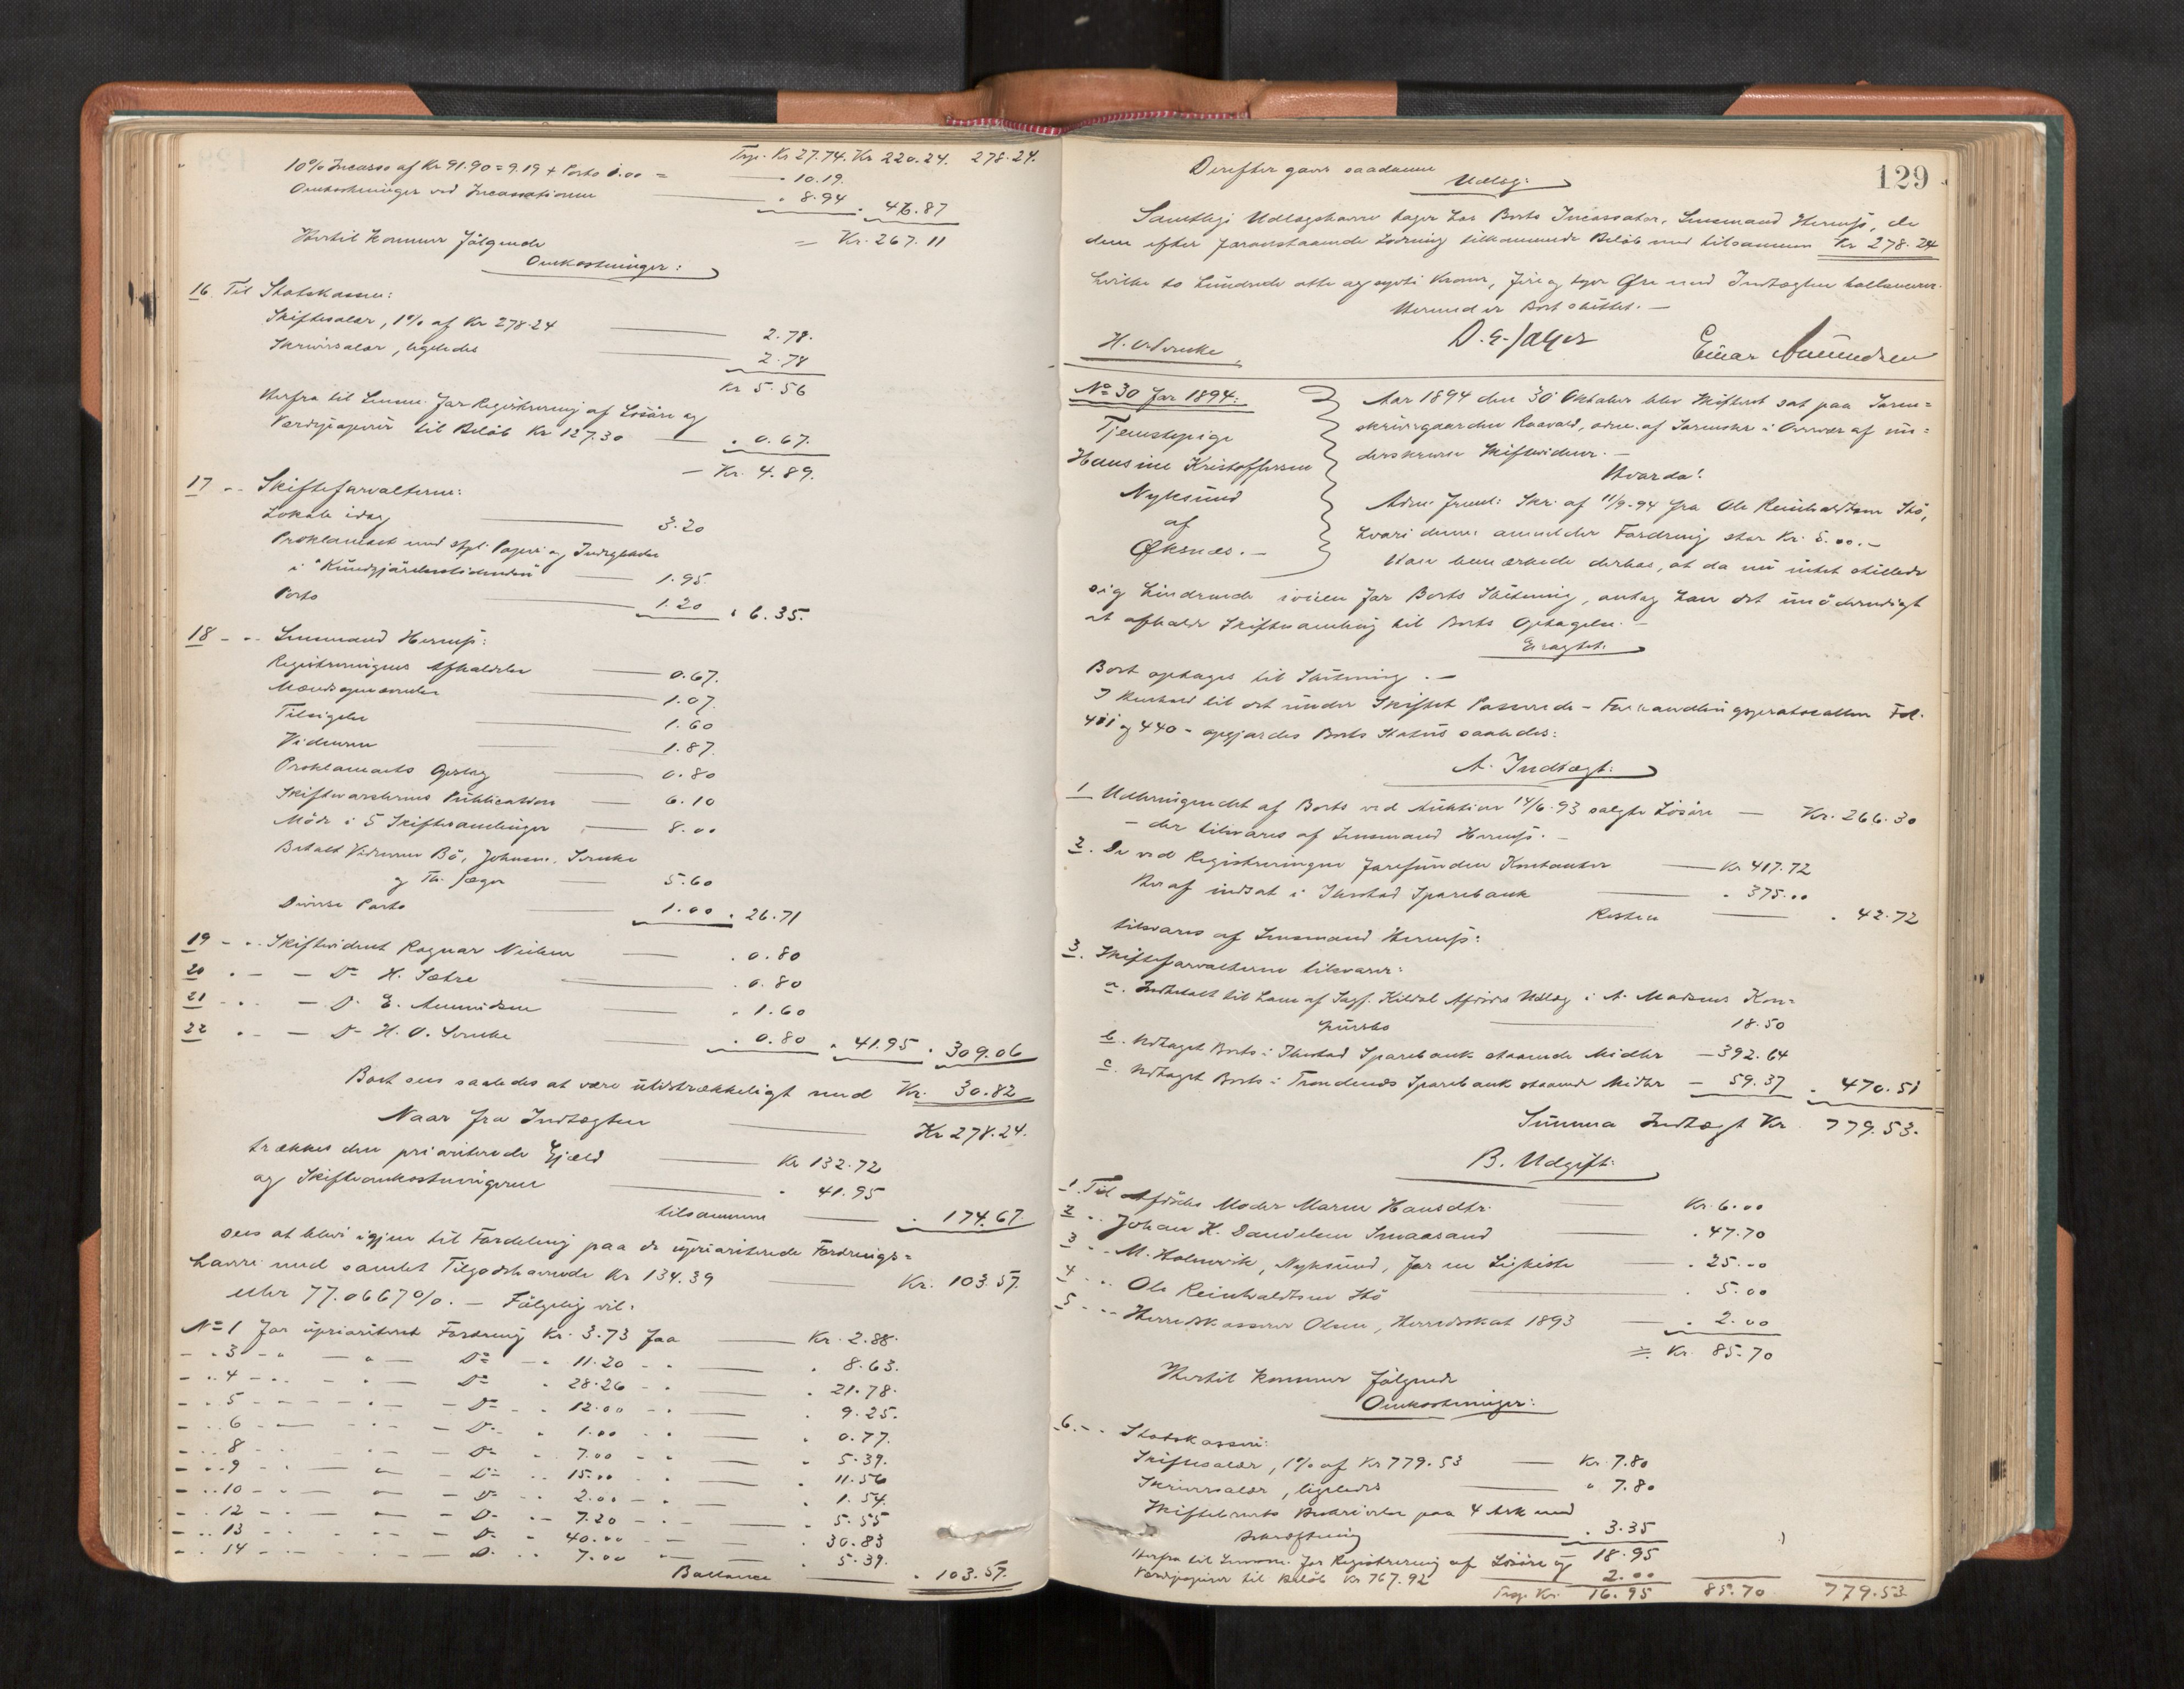 Trsp. Kr 27.74. Kr 220.24. 278.24.
10% Incasso af Kr 91.90 = 9.19 + Porto 1.00 = " 10.19.
Omkostninger ved Incassationen " 8.94 . 46.87
= Kr. 267.11
Hertil kommer følgende
Omkostninger:
16. Til Statskassen:
Skiftesalær, 1% af Kr 278.24 2.78.
Skriversalær, ligeledes 2.78
Kr 5.56
Herfra til Lensm. for Registrering af Løsøre og
Værdipapirer til Beløb Kr 127.30 " 0.67.
- Kr. 4.89.
17 - " Skifteforvalteren:
Lokale idag 3.20
Proklamaet med stpl. Papir og Indrykkelse
i "Kundgjørelsestidenden" 1.95
Porto 1.20 " 6.35.
18 - " Lensmand :
Registreringens Afholdelse 0.67.
1.07.
Tilsigelse 1.60
Vidnerne 1.87.
Proklamaets Opslag 0.80
Skiftevarslernes Publication 6.10
Møde i 5 Skiftesamlinger 8.00
Betalt Vidnerne Bø, Johnsen,
og Th. Jæger 5.60
Diverse Porto 1.00 . 26.71
19 - " Skiftevidnet Ragnar Nielsen . 0.80
20 " - - Do H. Sætre . 0.80
21 - " - Do E. Amundsen . 1.60
22 " - - Do H. O. . 0.80 " 41.95 . 309.06
Boet sees saaledes at være utilstrækkeligt med Kr. 30.82
Naar fra Indtægten Kr 278.24.
trækkes den prioriterede Gjæld Kr 132.72
og Skifteomkostningerne " 41.95
tilsammen . 174.67
sees at blive igjen til Fordeling paa de uprioriterede Fordrings-
havere med samlet Tilgodehavende Kr 134.39 Kr. 103.57.
eller 77.0667%. - Følgelig vil:
No 1 for uprioriteret Fordring Kr. 3.73 faa Kr. 2.88.
- " 3 - " - " - Do - " 11.20 - " . 8.63.
- " 4 - " - " - Do " 28.26 - " . 21.78.
- " 5 - - - " - - Do - " 12.00 - " . 9.25.
- " 6 - - " - - Do " 1.00 " " . 0.77.
- " 8 - " - - Do " 7.00 - " " 5.39.
- " 9 - " - " - Do " 15.00 - " 11.56
- " 10 - " - " - Do " 2.00 - " " 1.54.
- " 12 - " - " - Do - " 7.20 - " - 5.55
- " 13 - " - - Do - " 40.00 - . 30.83
- " 14 - " - - Do " 7.00 " . 5.39.
Ballance . 103.57.
129
Derefter gaves saadanne
Udlæg:
Samtlige Udlægshavere tager hos Boets Incassator, Lensmand , de
dem efter foranstaaende Lodning tilkommende Beløb med tilsammen Kr 278.24
hvilke to Hundrede otte og sytti Kroner, fire og tyve Øre med Indtægten ballancerer.
Hermed er Boet sluttet. -
H. O. D. E. Jæger Einar Amundsen
No 30 for 1894:
Tjenestepige
Hansine Kristoffersen
Nyksund
af
Øksnes. -
Aar 1894 den 30 Oktober blev Skifteret sat paa Soren-
skrivergaarden , adm. af Sorenskr. i Overvær af un-
derskrevne Skiftevidner. -
Hvorda:
Adm. freml. Skr. af 11/9-94 fra Ole Reinholdtsen Stø,
hvori denne anmelder Fordring stor Kr. 5.00. -
Han bemærkede derhos, at da nu intet stillede
sig hindrende iveien for Boets Slutning, antog han det unødvendigt
at afholde Skiftesamling til Boets Optagelse. -
Eragtet:
Boet optages til Slutning. -
I Henhold til det under Skiftet Passerede - Forhandlingsprotocollen Fol.
411 og 440 - opgjordes Boets Status saaledes:
A. Indtægt:
1 Udbringendet af Boets ved Auktion 14/6-93 solgte Løsøre - Kr. 266.30
- der tilsvares af Lensmand . -
2. De ved Registreringen forefundne Kontanter Kr 417.72
Heraf indsat i Ibestad Sparebank " 375.00
Resten . 42.72
tilsvares af Lensmand :
3. Skifteforvalteren tilsvarer:
a. Indbetalt til ham af Sagf. Kildal Afdødes Udlæg i A. Madsens Kon-
kursbo 18.50
b. Udtaget Boets i Ibestad Sparebank staaende Midler - 392.64
c. Udtaget Boets i Trondenæs Sparebank staaende Midler - 59.37 . 470.51
Summa Indtægt Kr 779.53.
B. Udgift:
1. Til Afdødes Moder Maren Hansdtr. Kr. 6.00
2 - " Johan K. Danielsen Smaasund . 47.70
3 - " M. Holmvik, Nyksund, for en Ligkiste . 25.00
4 - " Ole Reinholdtsen Stø . 5.00
5 - " Herredskasserer Olsen, Herredsskat 1893 . 2.00
= Kr. 85.70
Hertil kommer følgende
Omkostninger:
6. - " Statskassen:
Skiftesalær, 1% af Kr 779.53 Kr. 7.80
Skriversalær, ligeledes " 7.80
Skiftebrevets Beskrivelse paa 4 Ark med
Bekræftning . 3.35
18.95
Herfra til Lensm. for Registrering af Løsøre og
Værdipapirer til Beløb Kr 767.92 2.00
Trsp. Kr. 16.95 85.70 779.53